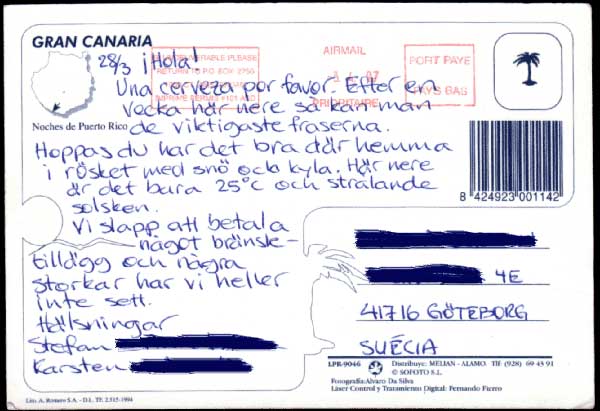 GRAN CANARIA
Noches de Puerto Rico
28/3 ¡Hola!
Una cerveza por favor. Efter en
vecka här nere så kan man
de viktigaste fraserna.
Hoppas du har det bra där hemma
i rösket med snö och kyla. Här nere
är det bara 25°C och strålande
solsken.
Vi slapp att betala
något bränsle-
tillägg och några
storkar har vi heller
inte sett.
Hälsningar
Stefan
Karsten
AIRMAIL
PRIORITAIRE
PORT PAYE
PAYS BAS
UNDELIVERABLE PLEASE
RETURN TO P.O. BOX
8 424923 001142
4E
41716 GÖTEBORG
SUÉCIA
LPR-9046 Distribuye: MELIAN - ALAMO. Tlf (928) 69 43 91
© SOFOTO S.L.
Fotografía: Alvaro Da Silva
Láser Control y Tratamiento Digital: Fernando Ficero
Lito. A. Romero S.A. - D.L. TF. 2.315-1994